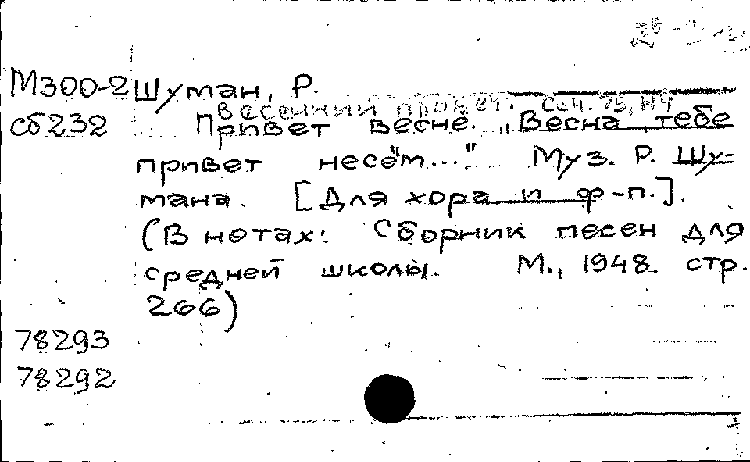 М300-2 Шуман, Р.
сб232 Привет весне. „Весна тебе
привет несём..." Муз. Р. Шу-
мана. [Для хора и ф-п.].
(В нотах: Сборник песен для
средней школы. М., 1948. стр.
266)
78293
78292